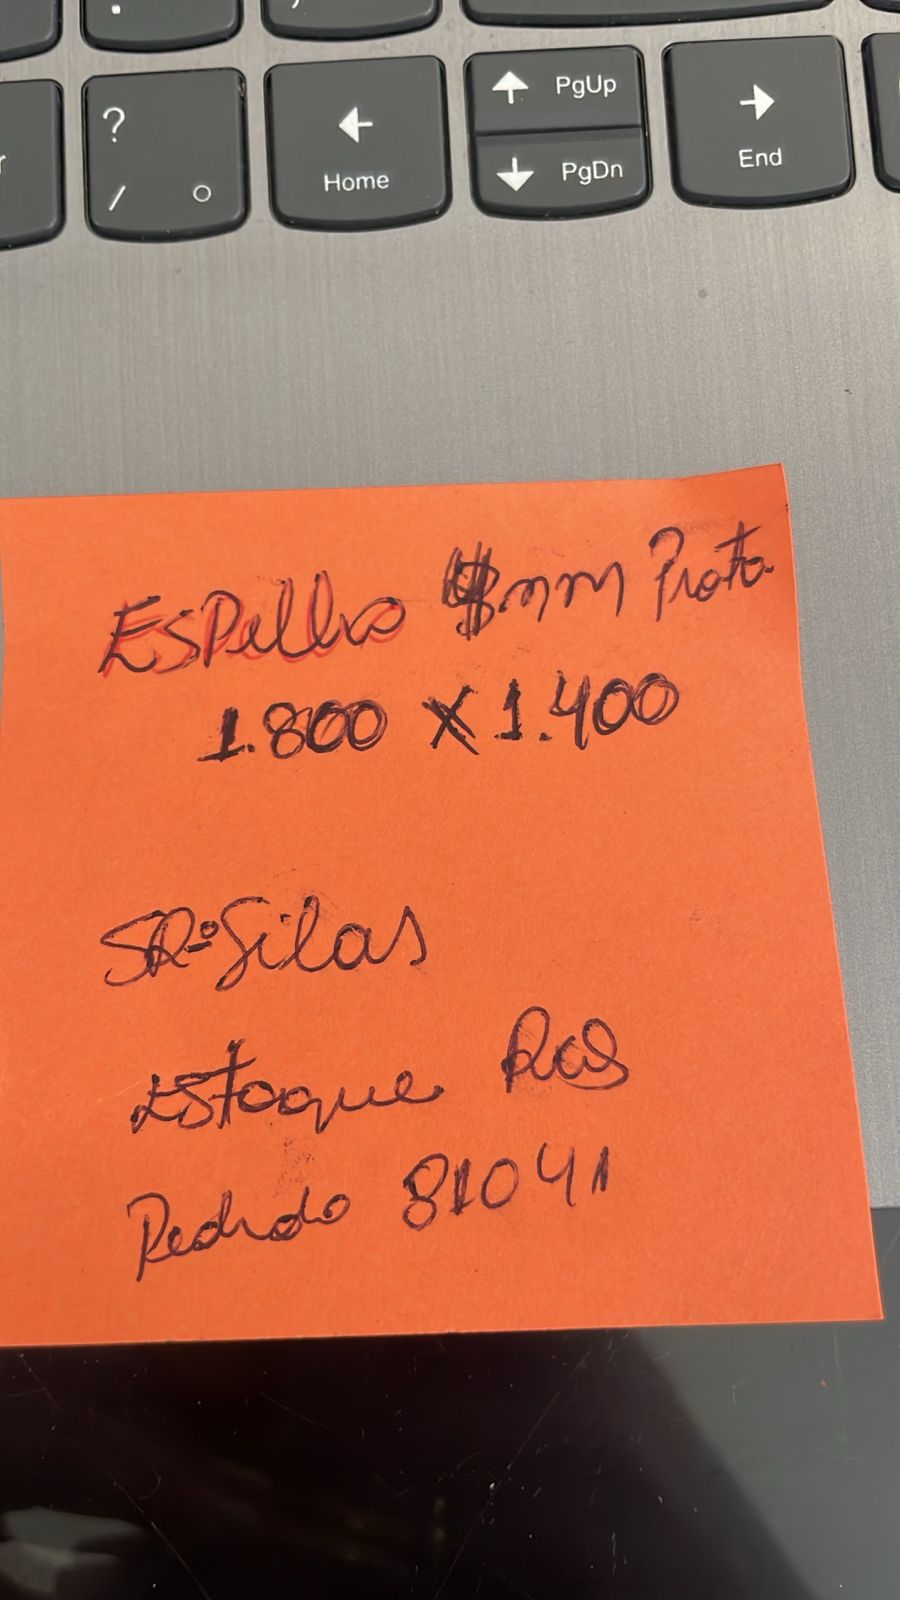 ?
/ °
← Home
↑ PgUp
↓ PgDn
→ End
Espelho mm Prata
1.800 X 1.400
SRº Silas
Estoque
Pedido 81041